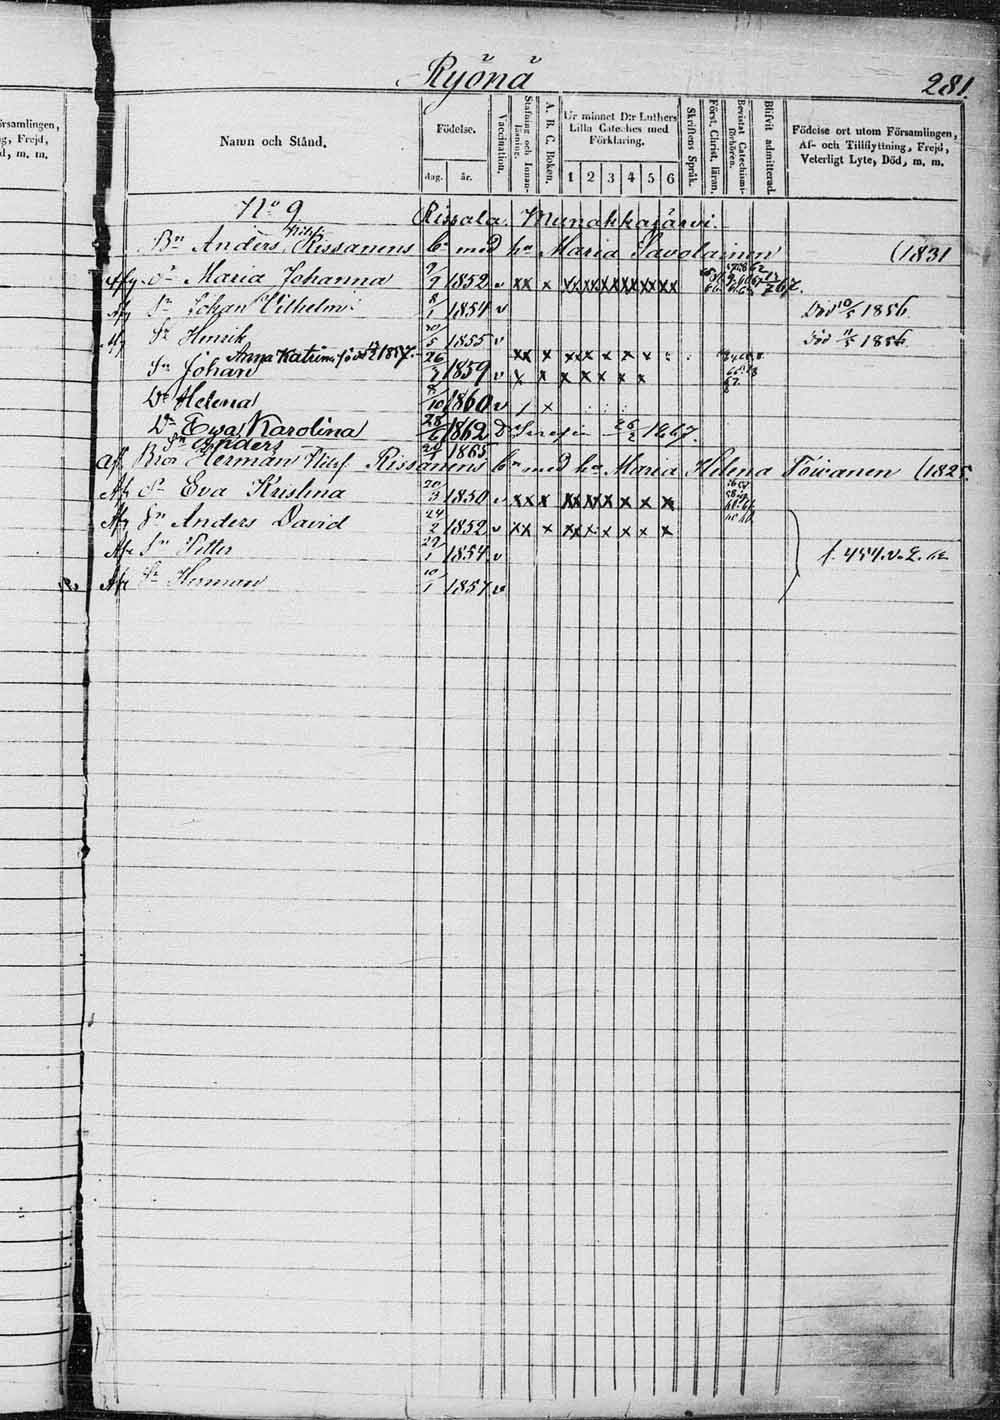 Ryönä
281.
örsamlingen,
Namn och Stånd.
Födelse.
dag. år.
Vaccination.
Stafning och Innan-läsning.
A. B. C. Boken.
Ur minnet D:r Luthers Lilla Cateches med Förklaring.
1 2 3 4 5 6
Skriftens Språk.
Först. Christ. läran.
Bevistat Catechismi-förhören.
Blifvit admitterad.
Födelse ort utom Församlingen, Af- och Tillflyttning, Frejd, Veterligt Lyte, Död, m. m.
No 9 Rissala. Munakkajärvi.
Bn Anders Rissanens bn med hu Maria Savolainen (1831
Maria Johanna 1852 v xx x
Sn Johan Vilhelm 8/1 1854 v Död 10/5 1856.
Sn Henrik 1855 v Död 11/5 1856.
Anna Katrina född 1857.
Sn Johan 26/3 1859 v x x x x x x x x
Dr Helena 8/10 1860 v / x
Dr Ewa Karolina 28/6 1862 D 26/2 1867.
Sn Anders 1865
Bror Herman Rissanens bn med hu Maria Helena Toivanen (1825.
Eva Kristina 20/3 1850 v xxx
Sn Anders David 24/2 1852 v xx x
Sn Petter 29/1 1854 v f. 454.
Sn Herman 10/1 1857 v